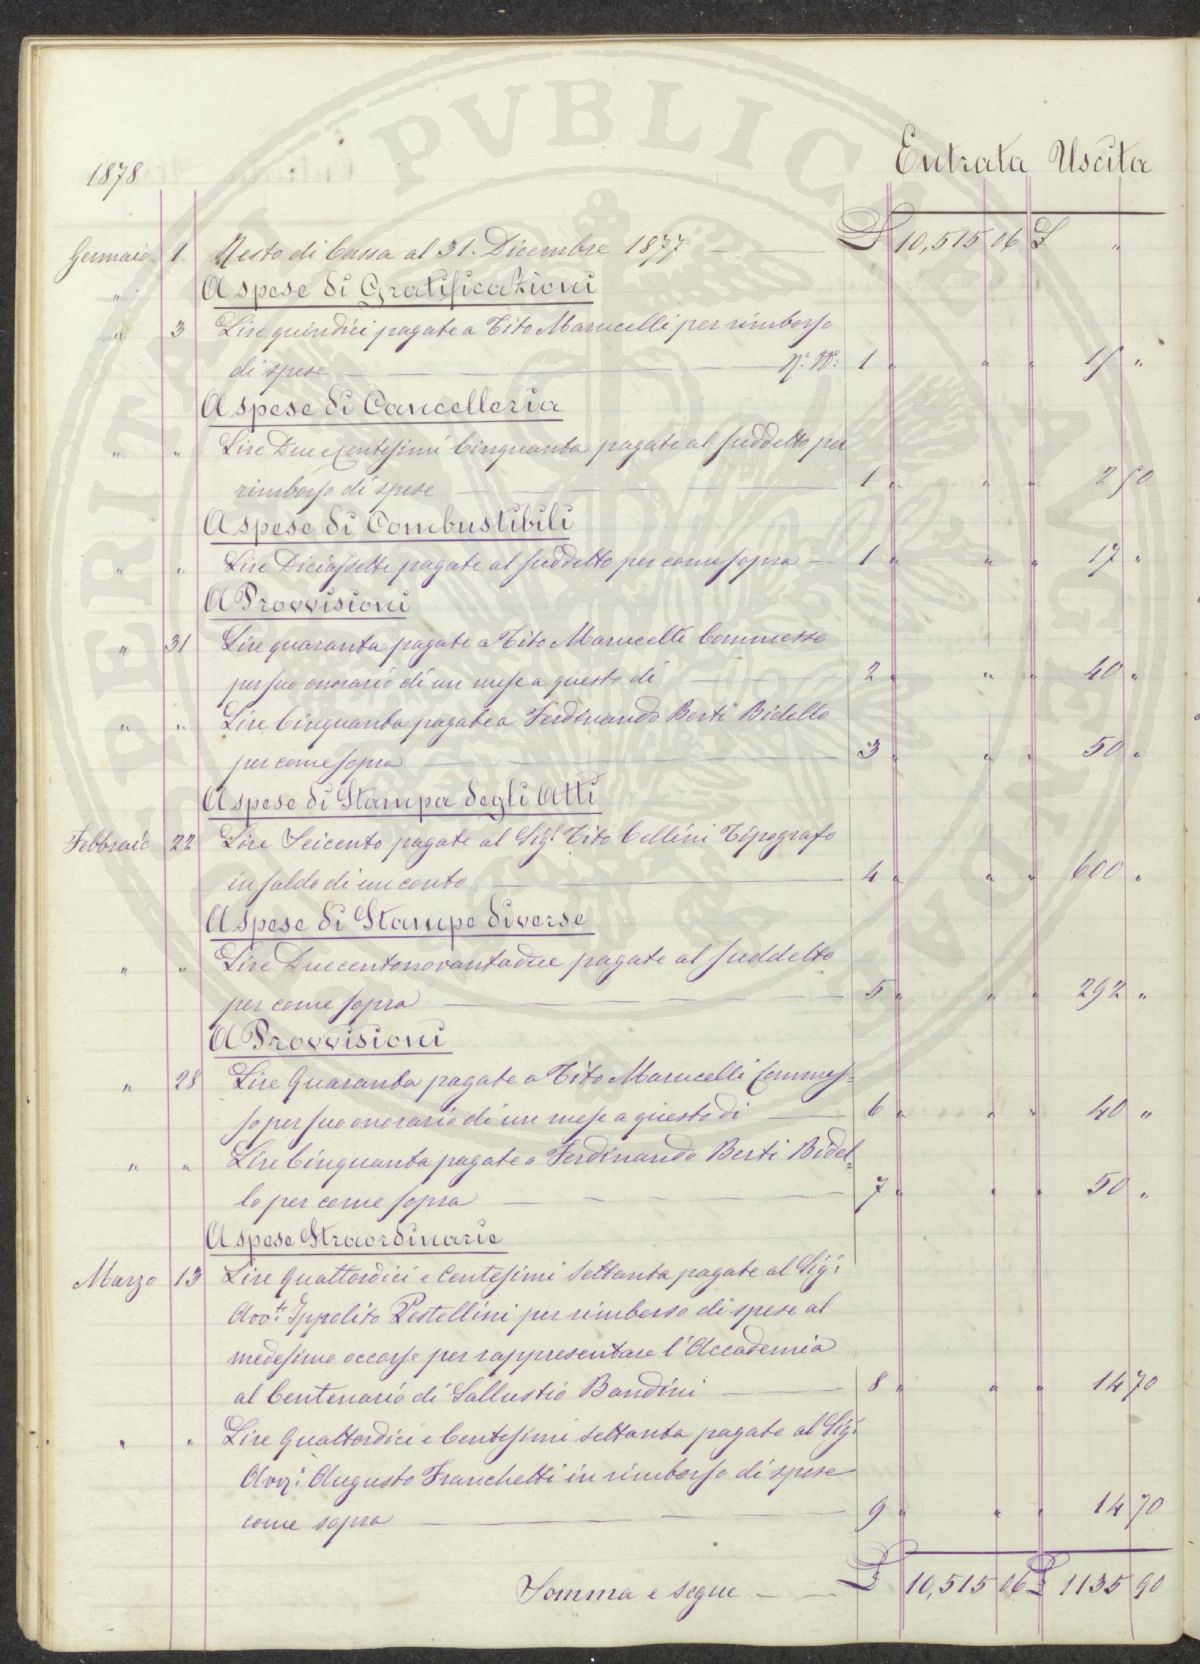 1878 Entrata Uscita
Gennaio 1 Resto di Cassa al 31. Dicembre 1877 — £ 10,515 06 £ "
" A spese di Gratificazioni
" 3 Lire quindici pagate a Tito Marucelli per rimborso
di spese — N.° 1 " " " 15 "
A spese di Cancelleria
" " Lire Due e Centesimi Cinquanta pagate al suddetto per
rimborso di spese — 1 " " " 2 50
A spese di Combustibili
" " Lire Diciassette pagate al suddetto per come sopra — 1 " " " 17 "
A Provvisioni
" 31 Lire quaranta pagate a Tito Marucelli Commesso
per suo onorario di un mese a questo dì — 2 " " " 40 "
" " Lire Cinquanta pagate a Ferdinando Berti Bidello
per come sopra — 3 " " " 50 "
A spese di Stampa degli Atti
Febbraio 22 Lire Seicento pagate al Sig.r Tito Cellini Tipografo
in saldo di un conto — 4 " " " 600 "
A spese di Stampe diverse
" " Lire Duecentonovantadue pagate al suddetto
per come sopra — 5 " " " 292 "
A Provvisioni
" 28 Lire Quaranta pagate a Tito Marucelli Commes=
so per suo onorario di un mese a questo dì — 6 " " " 40 "
" " Lire Cinquanta pagate a Ferdinando Berti Bidel=
lo per come sopra — 7 " " " 50 "
A spese Straordinarie
Marzo 13 Lire Quattordici e Centesimi settanta pagate al Sig.r
Avv.t Ippolito Pestellini per rimborso di spese al
medesimo occorse per rappresentare l'Accademia
al Centenario di Sallustio Bandini — 8 " " " 14 70
" " Lire Quattordici e Centesimi settanta pagate al Sig.r
Avv.: Augusto Franchetti in rimborso di spese
come sopra — 9 " " " 14 70
Somma e segue — £ 10,515 06 £ 1135 90
PUBLICAE
PROSPERITATI AUGENDAE